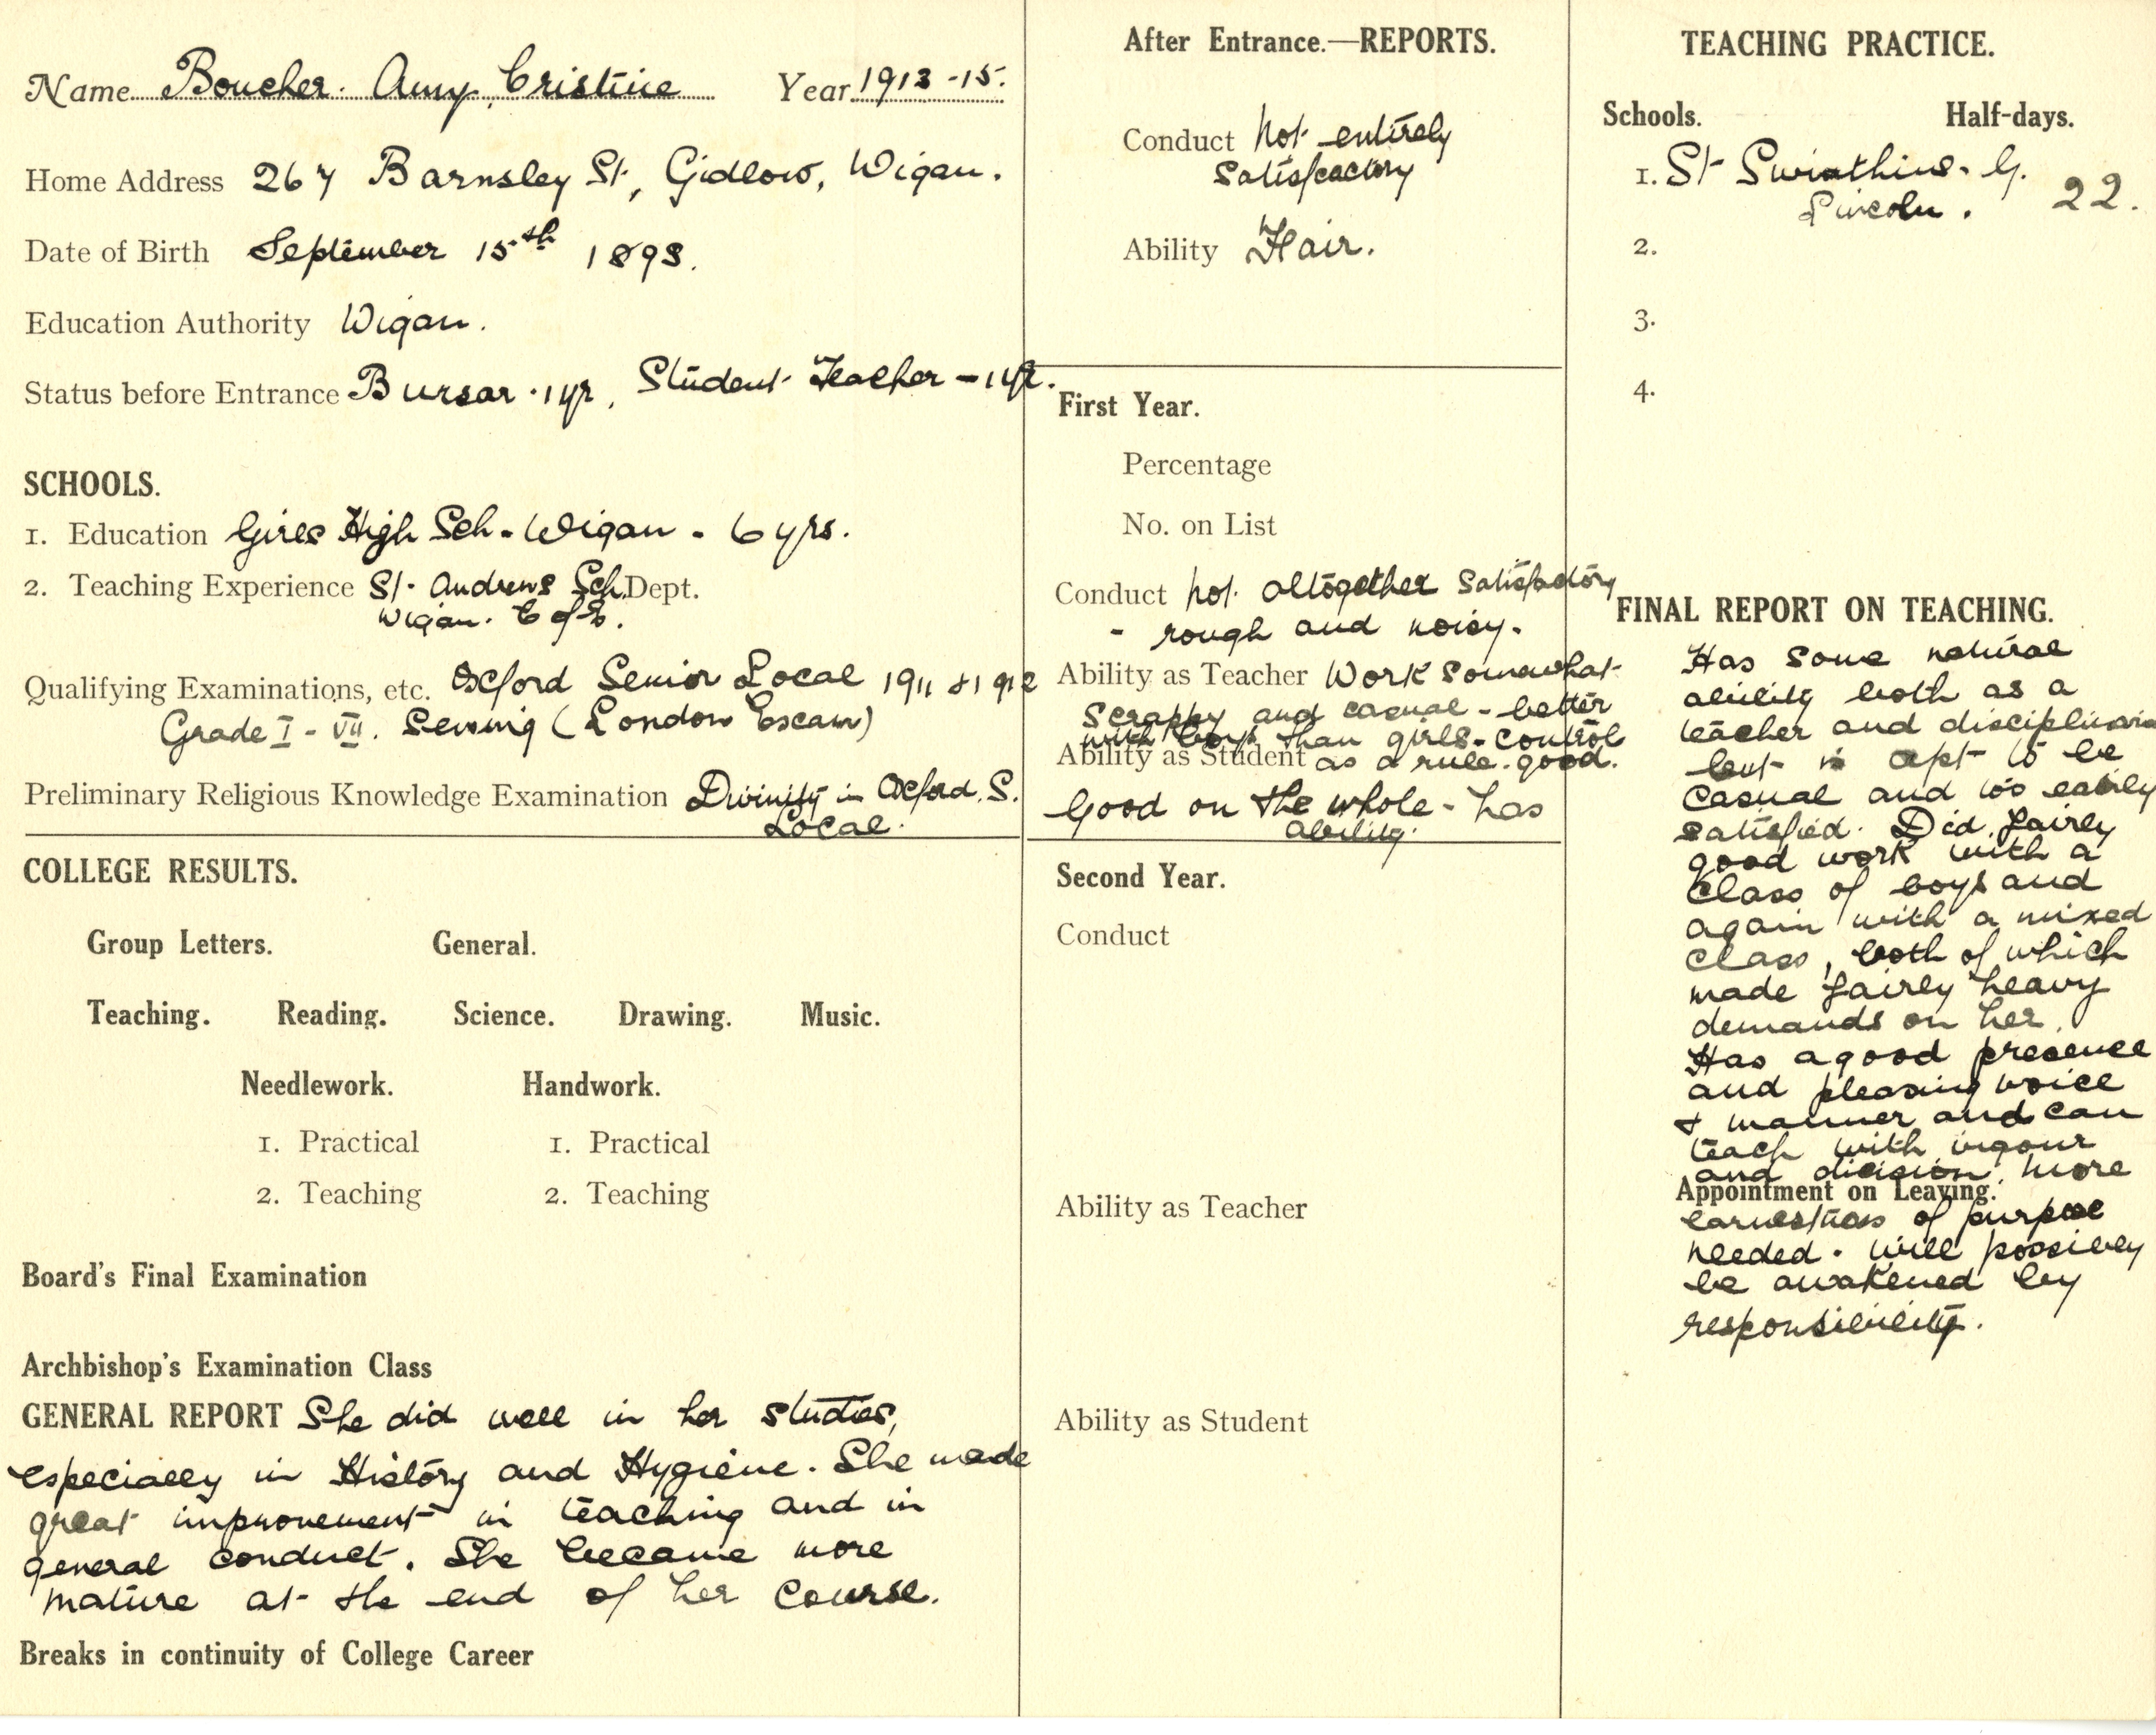 Name Boucher. Amy Cristine Year 1913-15.
Home Address 267 Barnsley St, Gidlow, Wigan.
Date of Birth September 15th 1893.
Education Authority Wigan.
Status before Entrance Bursar. 1 yr, Student Teacher - 1 yr.
SCHOOLS.
1. Education Girls High Sch. Wigan. 6 yrs.
2. Teaching Experience St. Andrews Sch. Dept.
Wigan. C of E.
Qualifying Examinations, etc. Oxford Senior Local 1911 & 1912
Grade I - VII. Sewing (London Exam)
Preliminary Religious Knowledge Examination Divinity in Oxford. S.
Local.
COLLEGE RESULTS.
Group Letters. General.
Teaching. Reading. Science. Drawing. Music.
Needlework. Handwork.
1. Practical 1. Practical
2. Teaching 2. Teaching
Board's Final Examination
Archbishop's Examination Class
GENERAL REPORT She did well in her studies,
especially in History and Hygiene. She made
great improvement in teaching and in
general conduct. She became more
mature at the end of her course.
Breaks in continuity of College Career
After Entrance.—REPORTS.
Conduct Not entirely
satisfactory
Ability Fair.
First Year.
Percentage
No. on List
Conduct Not altogether satisfactory
- rough and noisy.
Ability as Teacher Work somewhat
scrappy and casual - better
with boys than girls - control
Ability as Student as a rule. good.
Good on the whole - has
ability.
Second Year.
Conduct
Ability as Teacher
Ability as Student
TEACHING PRACTICE.
Schools. Half-days.
1. St Swinthins. G.
Lincoln. 22.
2.
3.
4.
FINAL REPORT ON TEACHING.
Has some natural
ability both as a
teacher and disciplinarian
but is apt to be
casual and too easily
satisfied. Did fairly
good work with a
class of boys and
again with a mixed
class, both of which
made fairly heavy
demands on her.
Has a good presence
and pleasing voice
& manner and can
teach with vigour
and dicision. More
Appointment on Leaving.
earnestness of purpose
needed. Will possibly
be awakened by
responsibility.